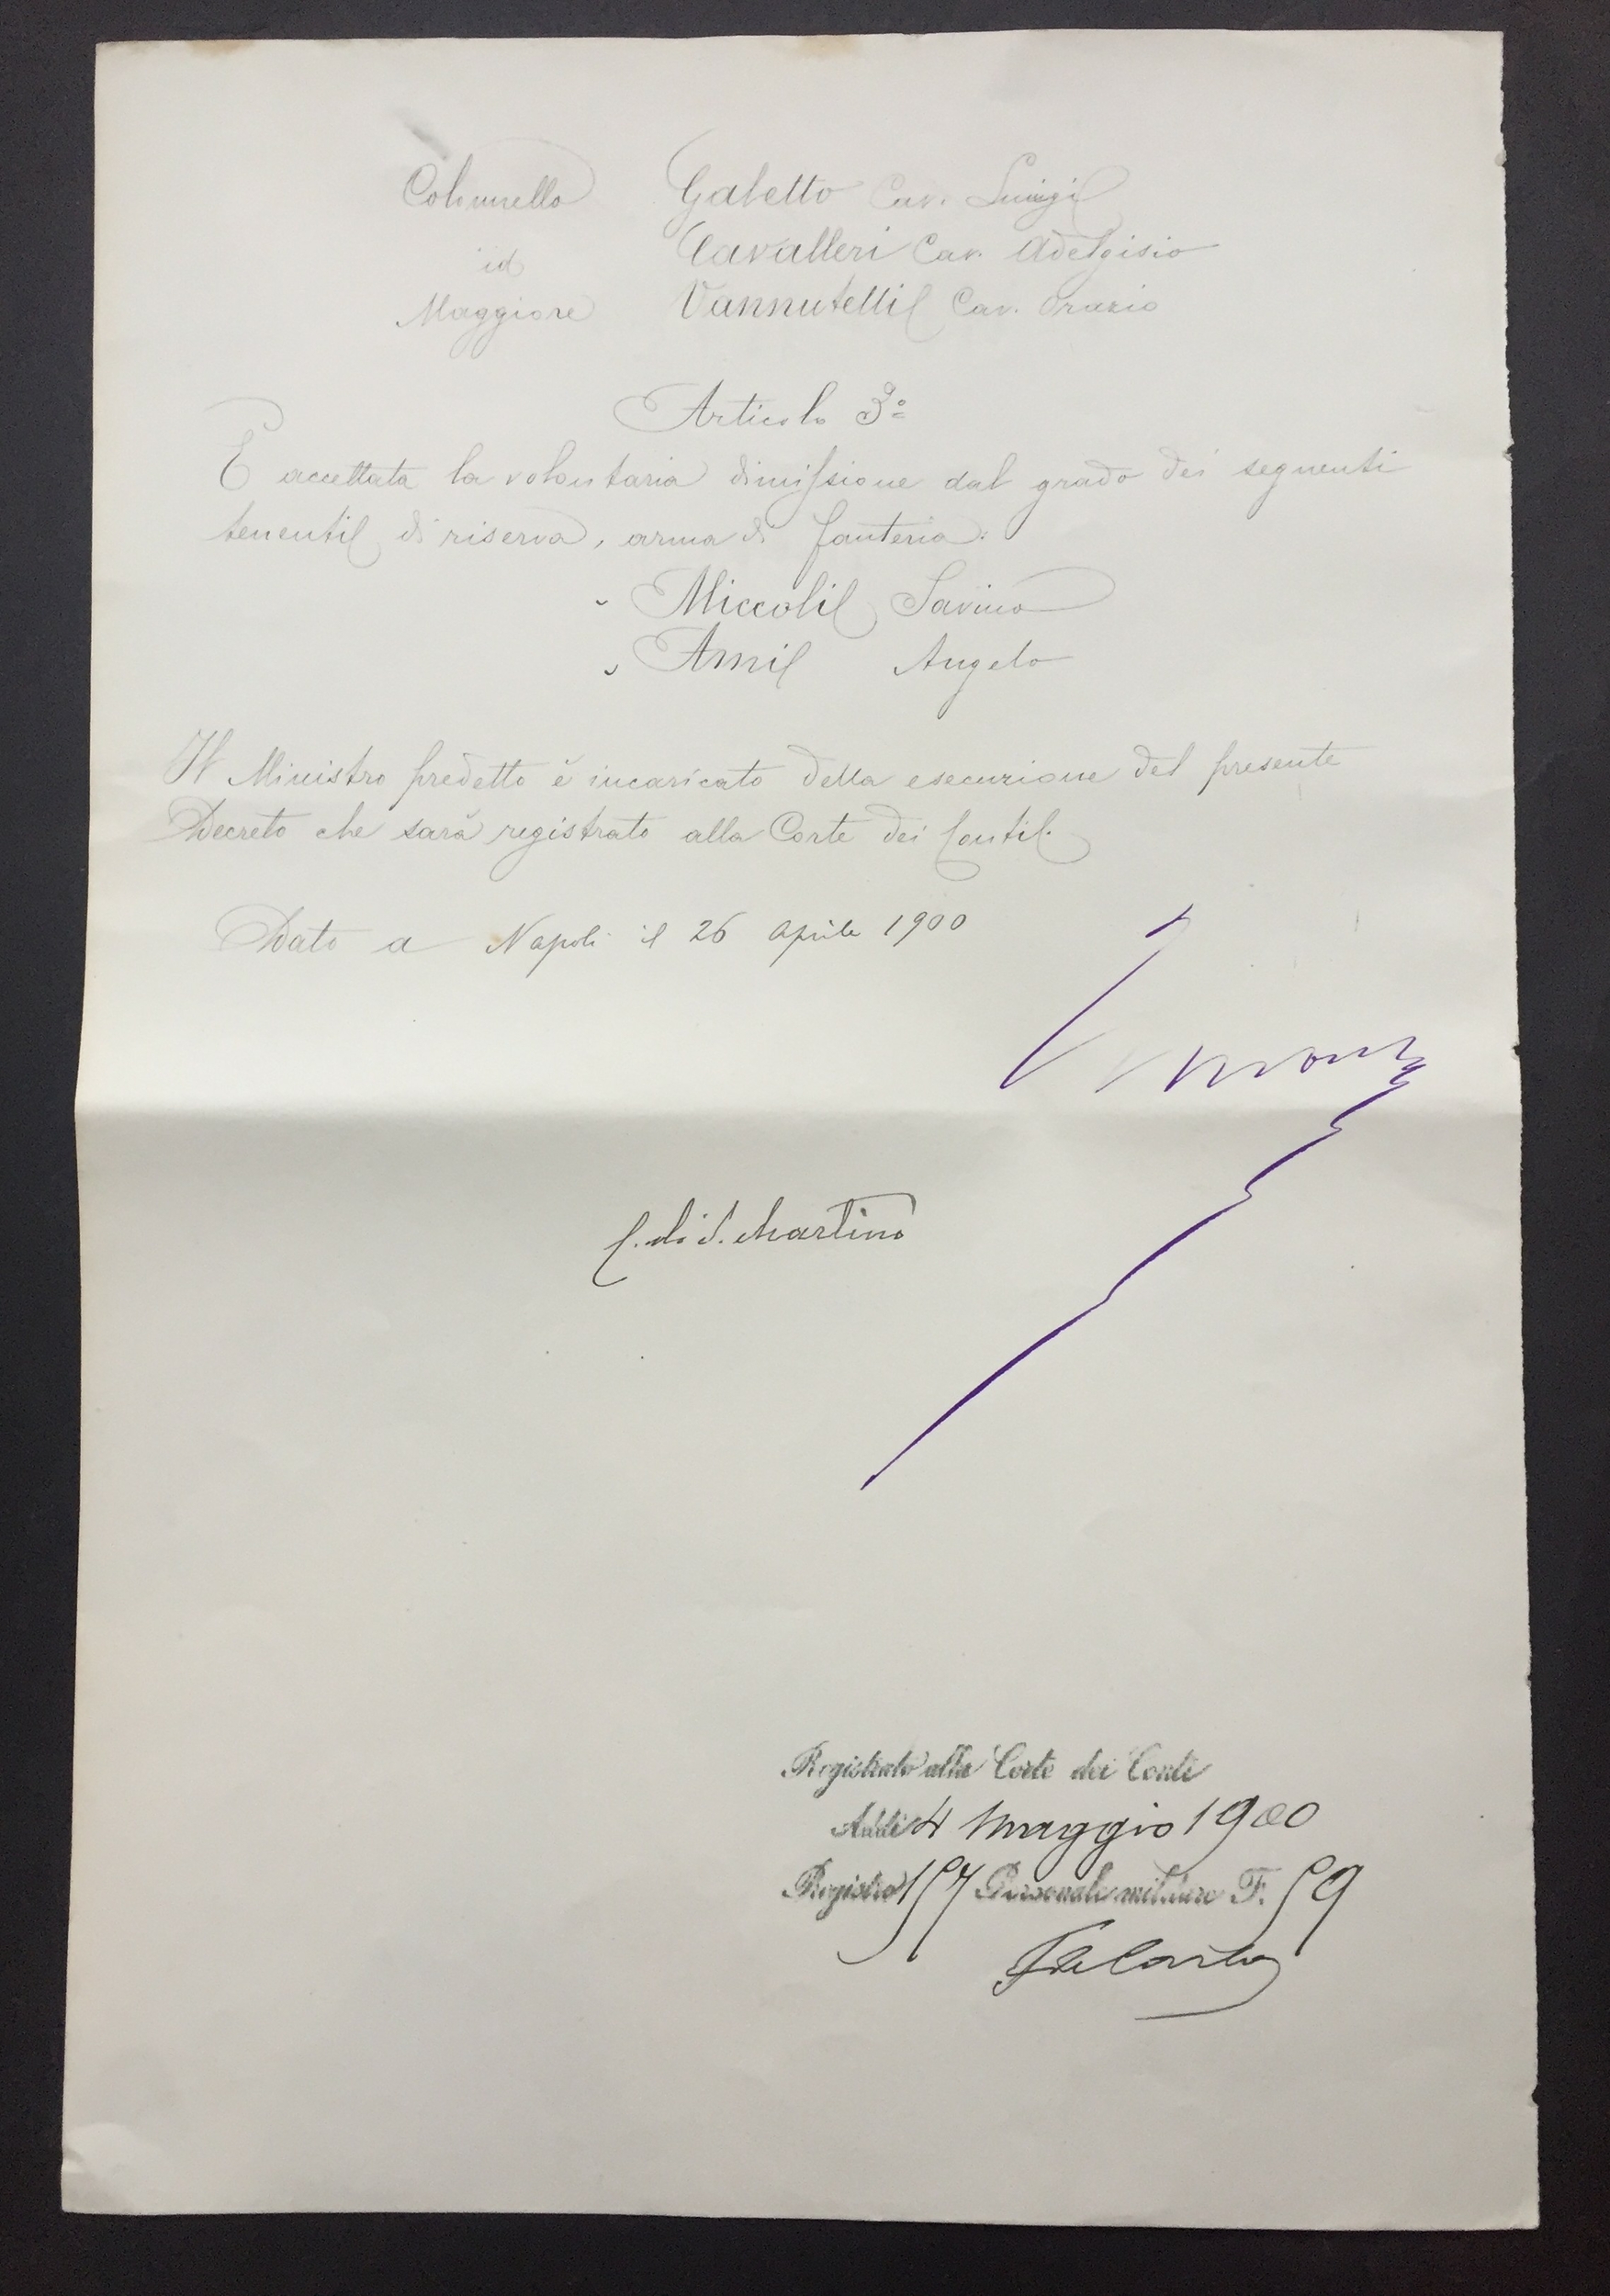 Colonnello Galetto Cav. Luigi
id Cavalleri Cav. Adelgisio
Maggiore Vannutelli Cav. Orazio
Articolo 3°
È accettata la volontaria dimissione dal grado dei seguenti
tenenti di riserva, arma di fanteria:
Miccoli Savino
Arnil Angelo
Il Ministro predetto è incaricato della esecuzione del presente
Decreto che sarà registrato alla Corte dei Conti.
Dato a Napoli il 26 Aprile 1900
C. di S. Martino
Registrato alla Corte dei Conti
Addì 4 Maggio 1900
Registro 157 Personale militare F. 59